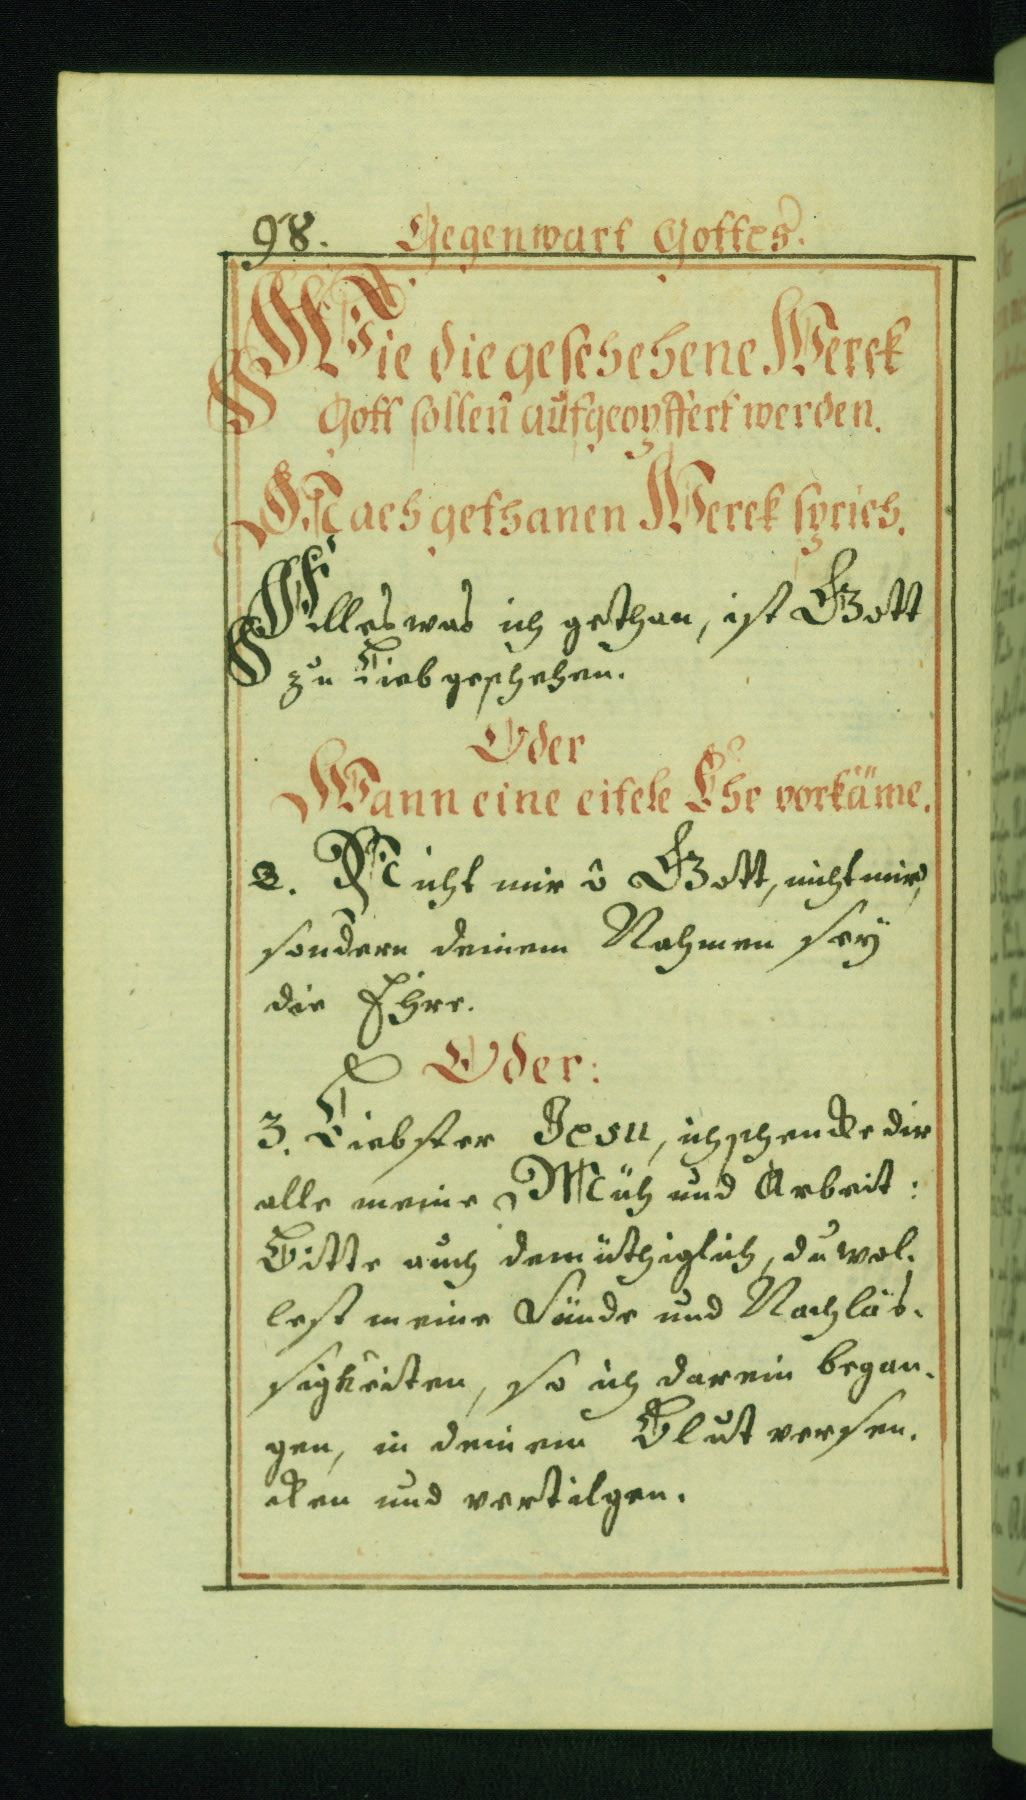 98. Gegenwart Gottes.
Wie die geschehene Werck
Gott sollen̄ aufgeopffert werden.
Nach gethanen Werck sprich.
Alles was ich gethan, ist Gott
zu Lieb geschehen.
Oder
Wann eine eitele Ehr vorkäme.
2. Nicht mir ô Gott, nicht mir,
sondern deinem Nahmen seÿ
die Ehre.
Oder:
3. Liebster Jesu, ich schencke dir
alle meine Müh und Arbeit:
Bitte auch demüthiglich, du wol-
lest meine Sünde und Nachläs-
sigkeiten, so ich darein began-
gen, in deinem Blut versen-
cken und vertilgen.